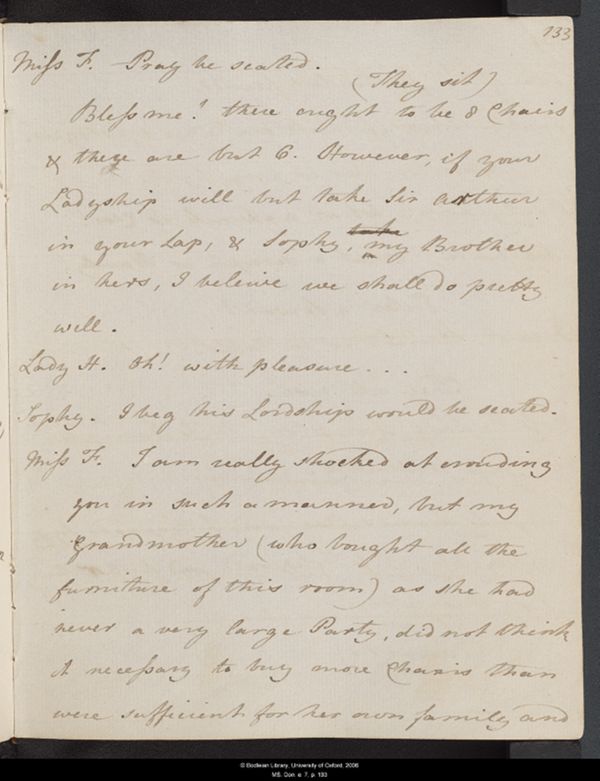 133
Miſs F. Pray be seated.
(They sit)
Bleſs me! there ought to be 8 Chairs
& there are but 6. However, if your
Ladyship will but take Sir Arthur
in your Lap, & Sophy, my Brother
in hers, I beleive we shall do pretty
well.
Lady H. Oh! with pleasure...
Sophy. I beg his Lordship would be seated.
Miſs F. I am really shocked at crouding
you in such a manner, but my
Grandmother (who bought all the
furniture of this room) as she had
never a very large Party, did not think
it neceſsary to buy more Chairs than
were sufficient for her own family and
© Bodleian Library, University of Oxford, 2006
MS. Don. e. 7, p. 133